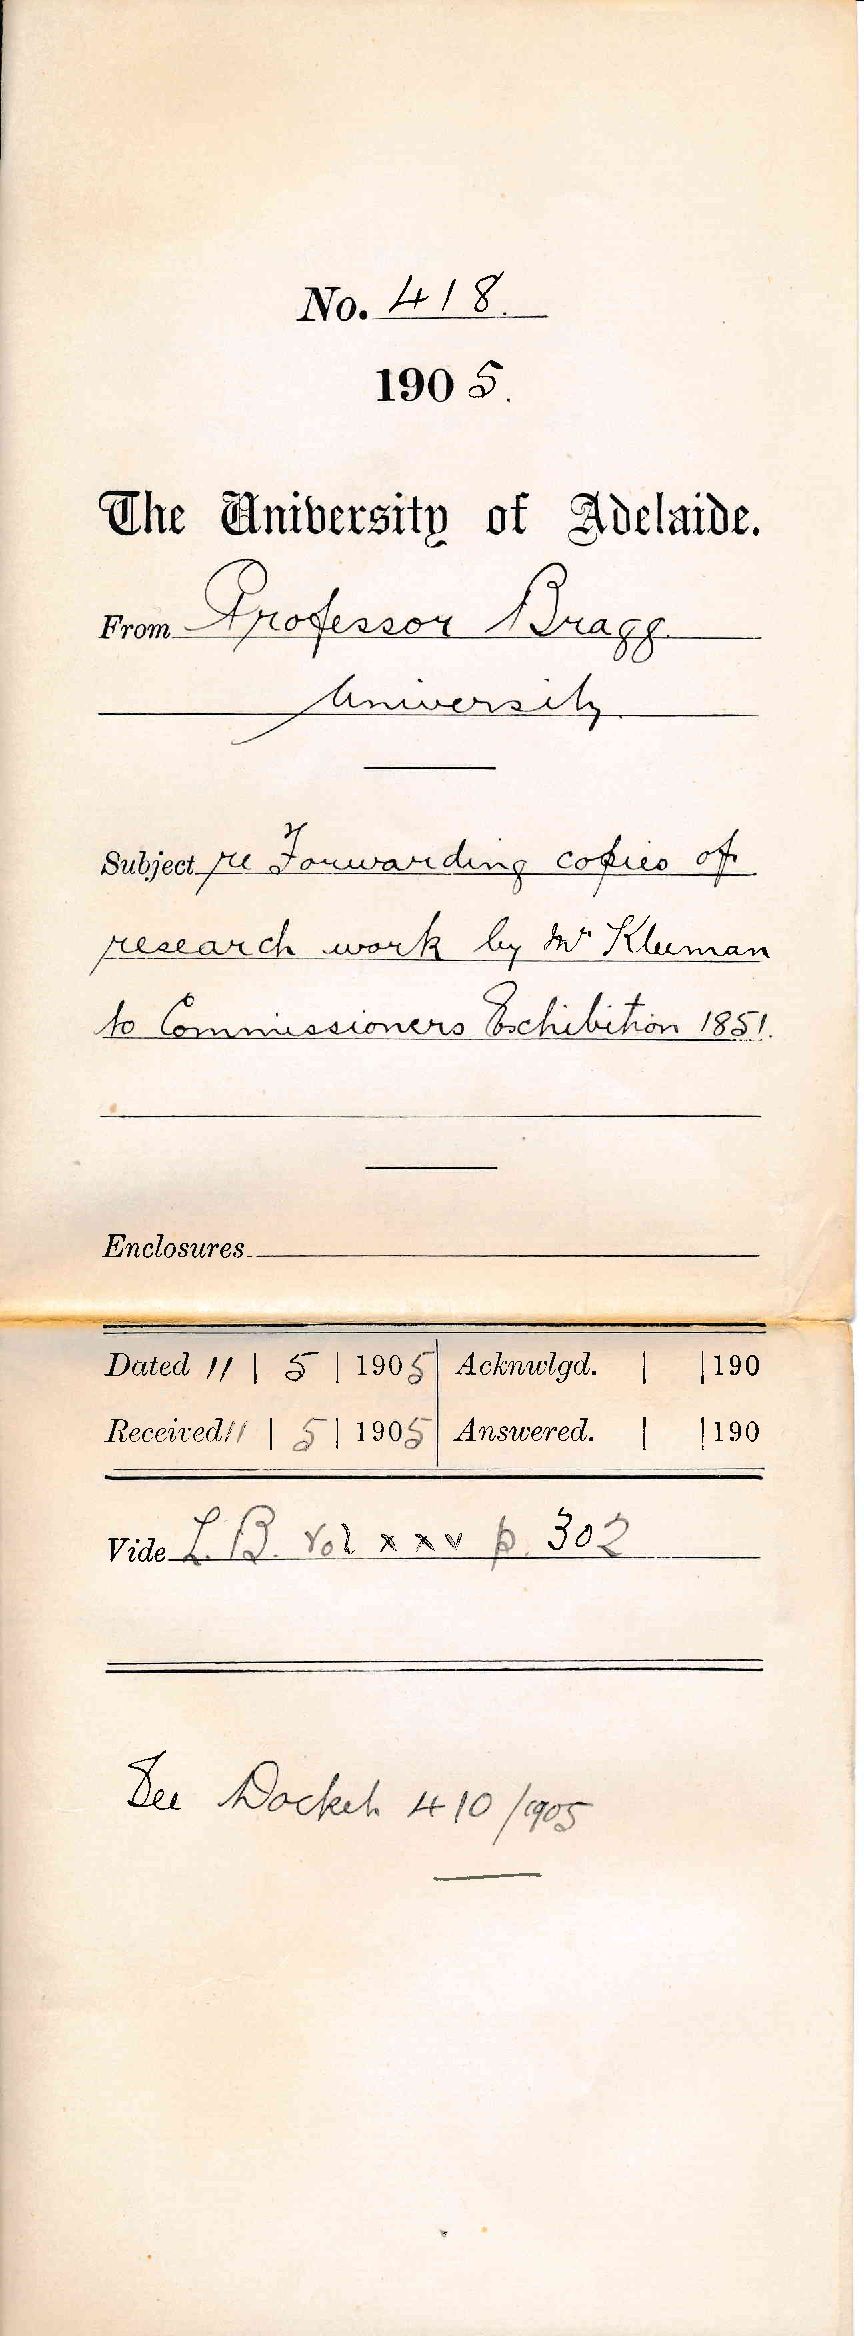 No. 418.
1905.
The University of Adelaide.
From Professor Bragg.
University.
Subject re Forwarding copies of
research work by Mr Kleeman
to Commissioners Exhibition 1851.
Enclosures
Dated 11 | 5 | 1905 Acknwlgd. | | 190
Received 11 | 5 | 1905 Answered. | | 190
Vide L.B. Vol xxv p. 302
See Docket 410/1905